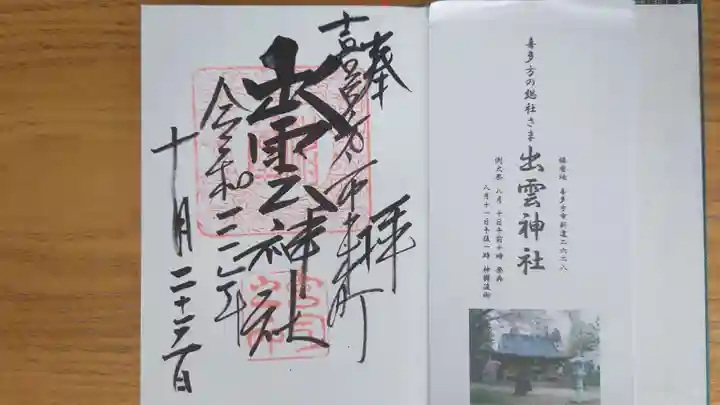 奉拝
喜多方市
出雲神社
令和二年
十月二十六日
喜多方の総社さま
出雲神社
鎮座地 喜多方市新道二六二八
例大祭 八月十日午前十時 祭典
八月十一日午後一時 神輿渡御